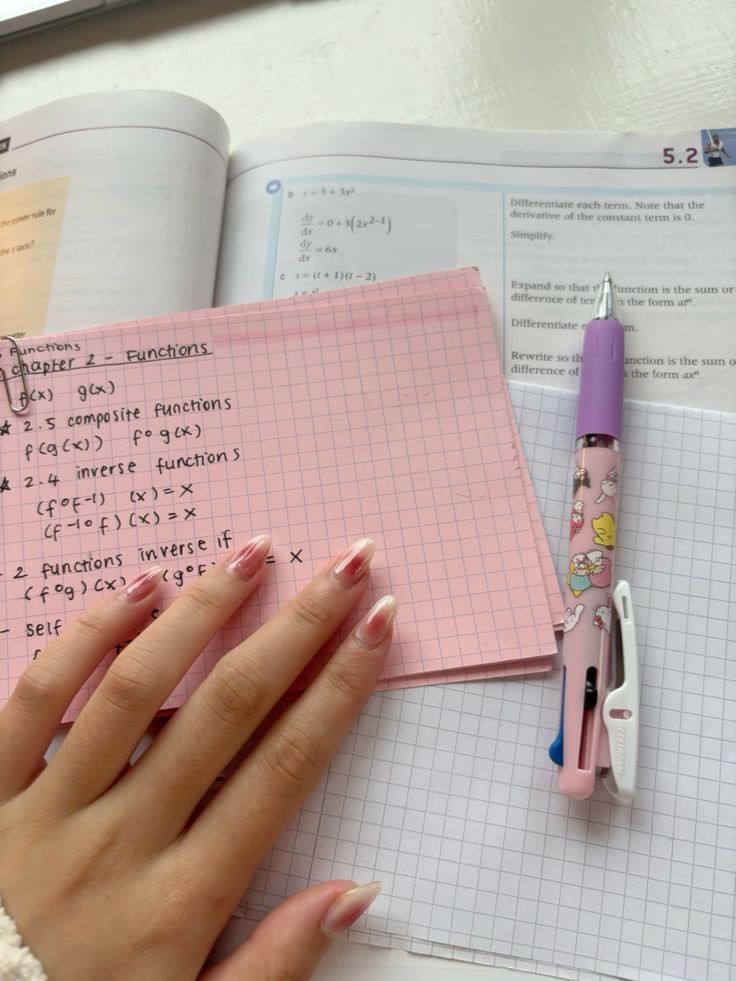 5.2
ions
the power rule for
the x-axis?
b y = 5 + 3x²
dy/dx = 0 + 3(2x²⁻¹)
dy/dx = 6x
c s = (t + 1)(t − 2)
Differentiate each term. Note that the
derivative of the constant term is 0.
Simplify.
Expand so that function is the sum or
difference of in the form arⁿ.
Differentiate
Rewrite so function is the sum
difference of the form axⁿ.
Functions
chapter 2 - Functions
f(x) g(x)
★ 2.5 composite functions
f(g(x)) fog(x)
★ 2.4 inverse functions
(f o f-1) (x) = x
(f-1 o f)(x) = x
- 2 functions inverse if
(fog)(x) = x
- self